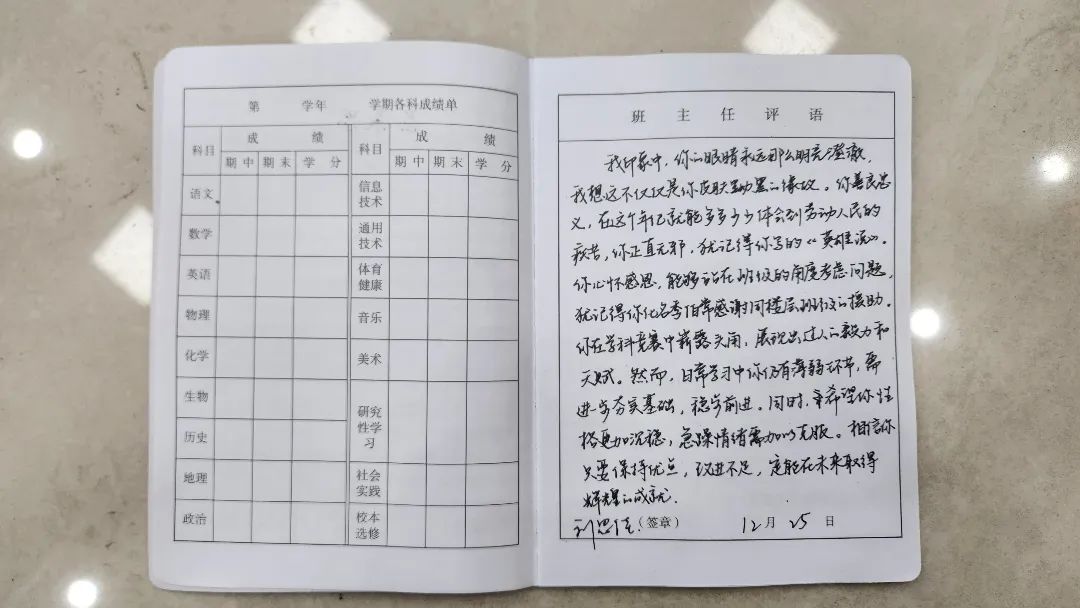 第 学年 学期各科成绩单
科目 成绩 科目 成绩
期中 期末 学分 期中 期末 学分
语文 信息技术
数学 通用技术
英语 体育健康
物理 音乐
化学 美术
生物 研究性学习
历史
地理 社会实践
政治 校本选修
班主任评语
我印象中，你的眼睛永远那么明亮澄澈，
我想这不仅仅是你皮肤黝黑的缘故。你善良忠
义，在这个年纪就能多多少少体会到劳动人民的
疾苦，你正直无邪，犹记得你写的《英雄说》。
你心怀感恩，能够站在班级的角度考虑问题，
犹记得你化名季伯常感谢同楼层班级的援助。
你在学科竞赛中崭露头角，展现出过人的毅力和
天赋。然而，日常学习中你仍有薄弱环节，需
进步夯实基础，稳步前进。同时，希望你性
格更加沉稳，急躁情绪需加以克服。相信你
只要保持优点，改进不足，定能在未来取得
辉煌的成就.
刘思（签章） 12月25日